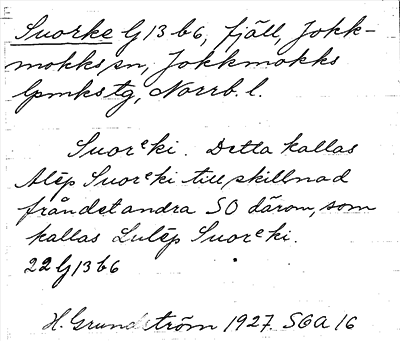 Suorke G 13 b 6, fjäll, Jokk-
mokks sn, Jokkmokks
lpmks tg, Norrb. l.
Suorᵉki. Detta kallas
Alēp Suorᵉki till skillnad
från det andra SO därom, som
kallas Lulēp Suorᵉki.
22 G 13 b 6
H. Grundström 1927. SOA 16